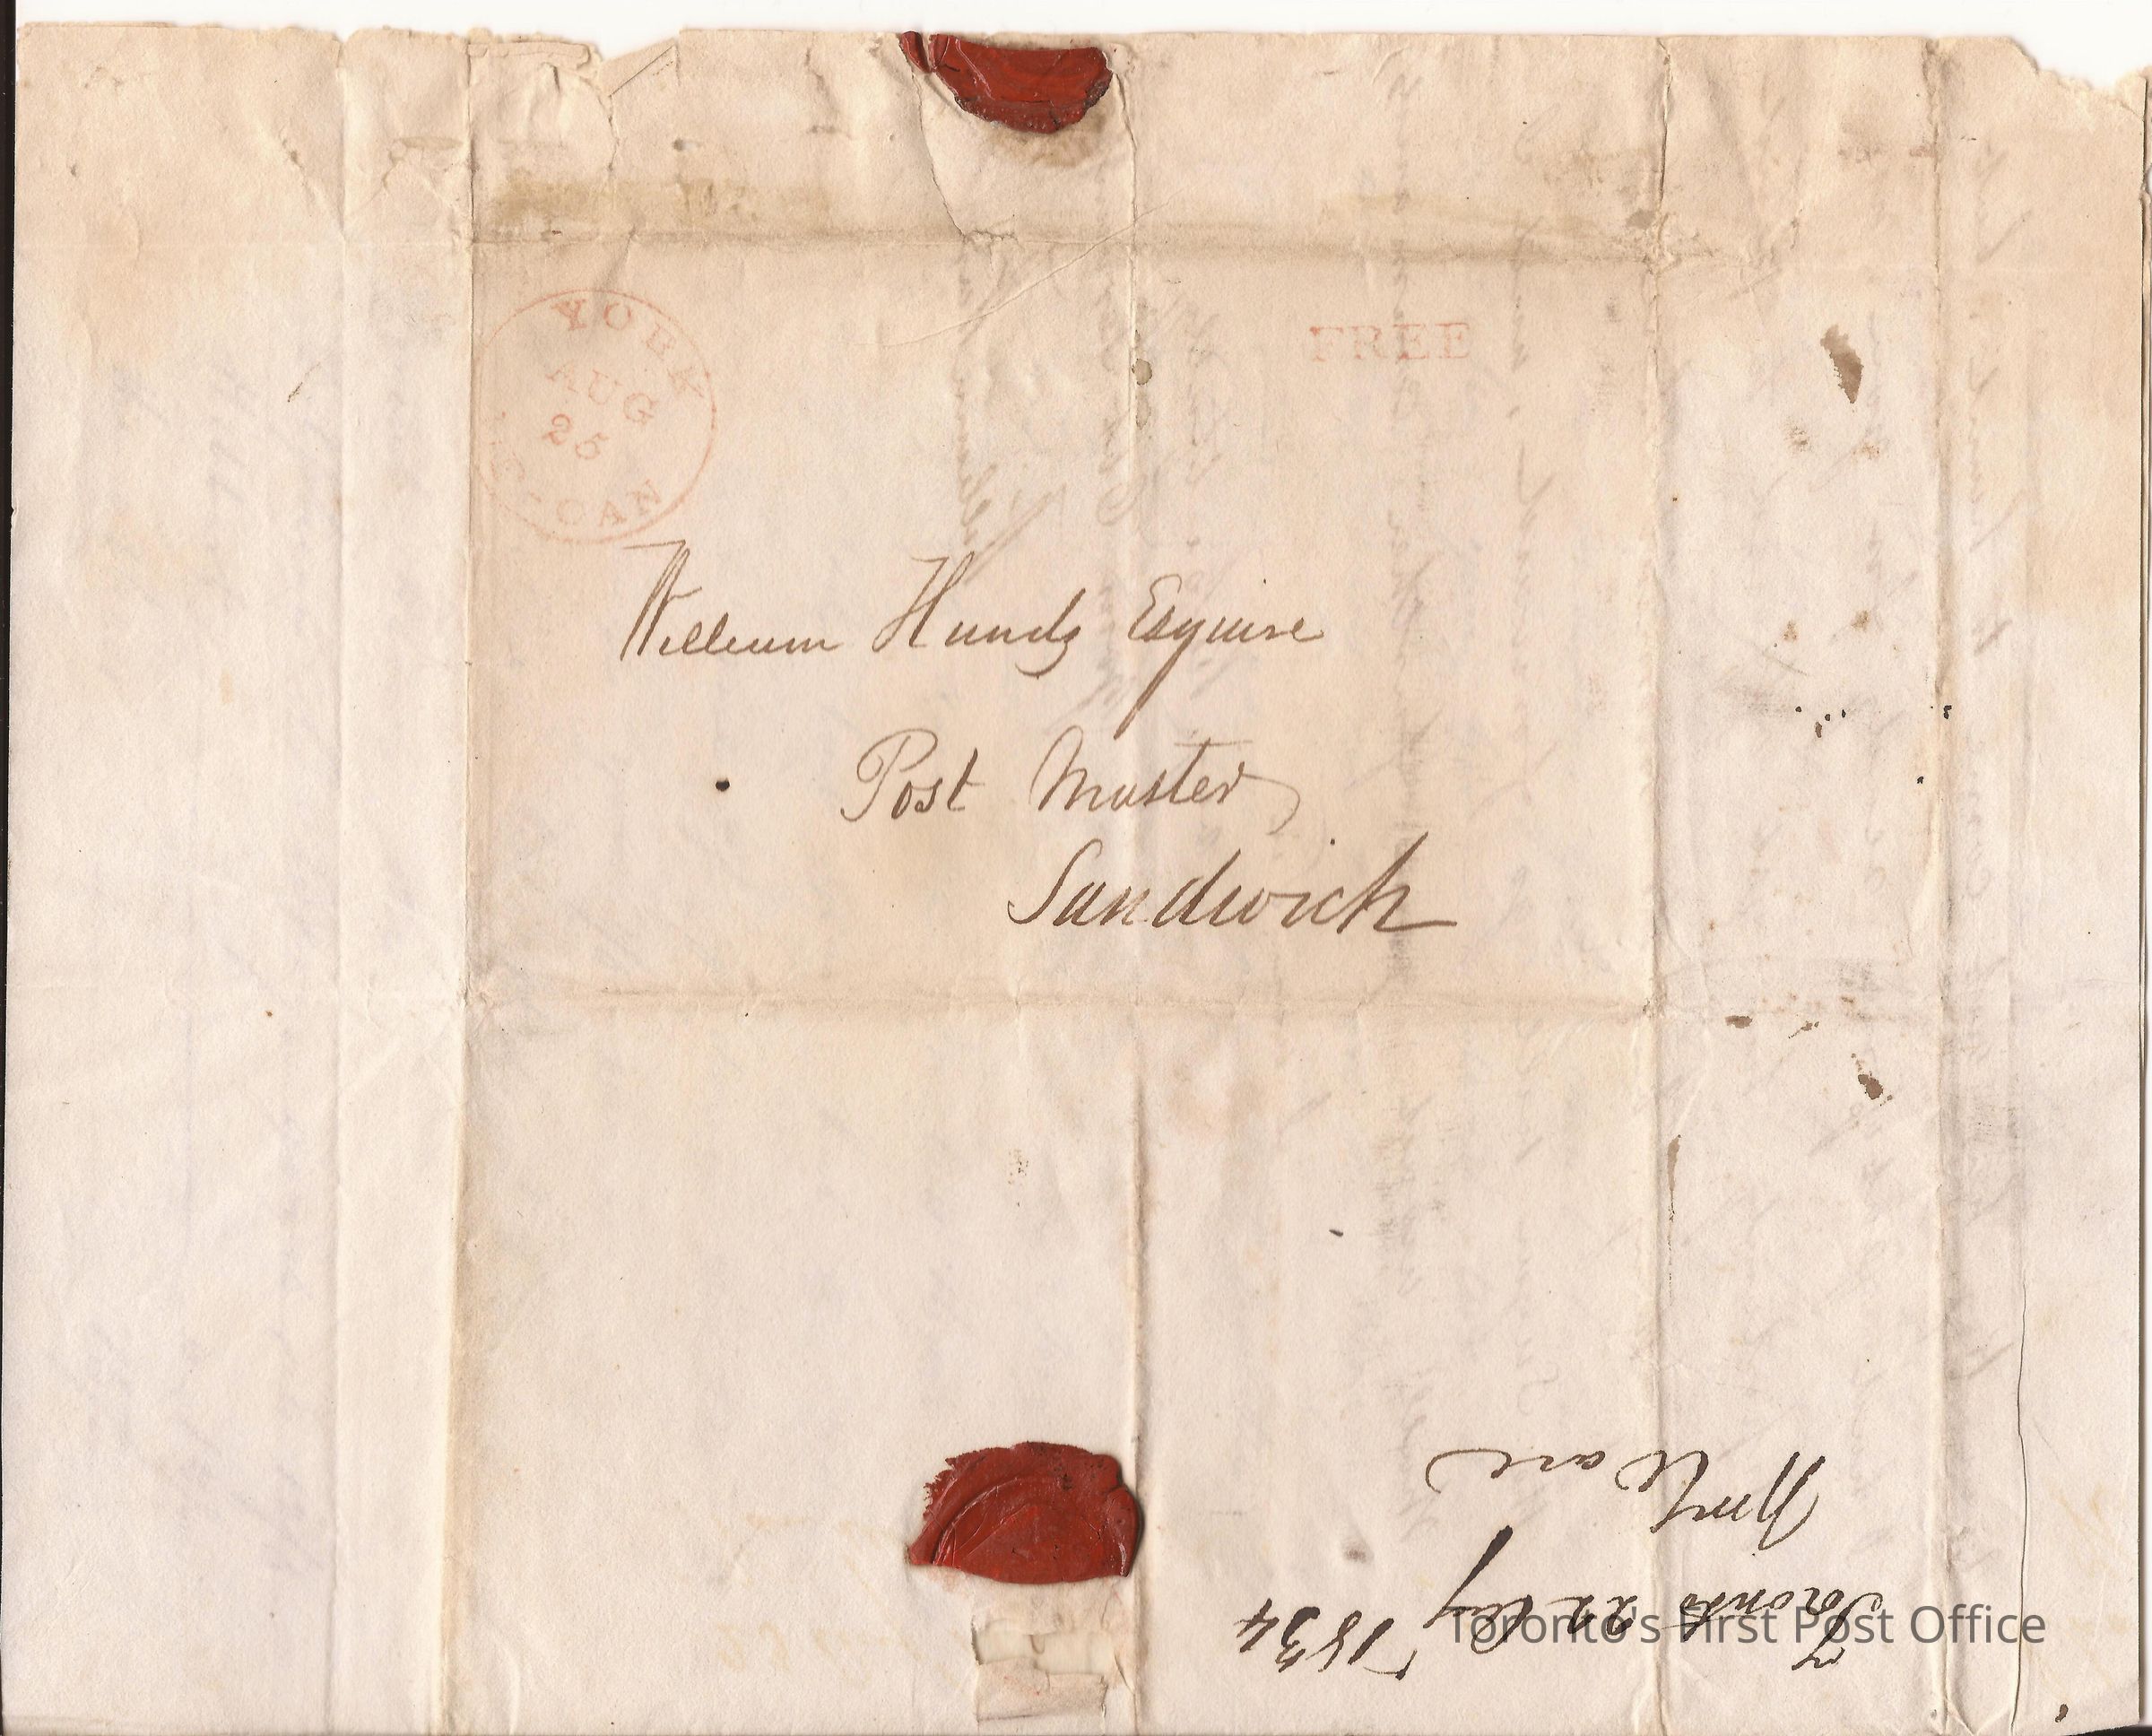 YORK
AUG
25
U-CAN
FREE
William Hands Esquire
Post Master
Sandwich
Toronto 22 Aug 1834
Wm
Toronto's First Post Office